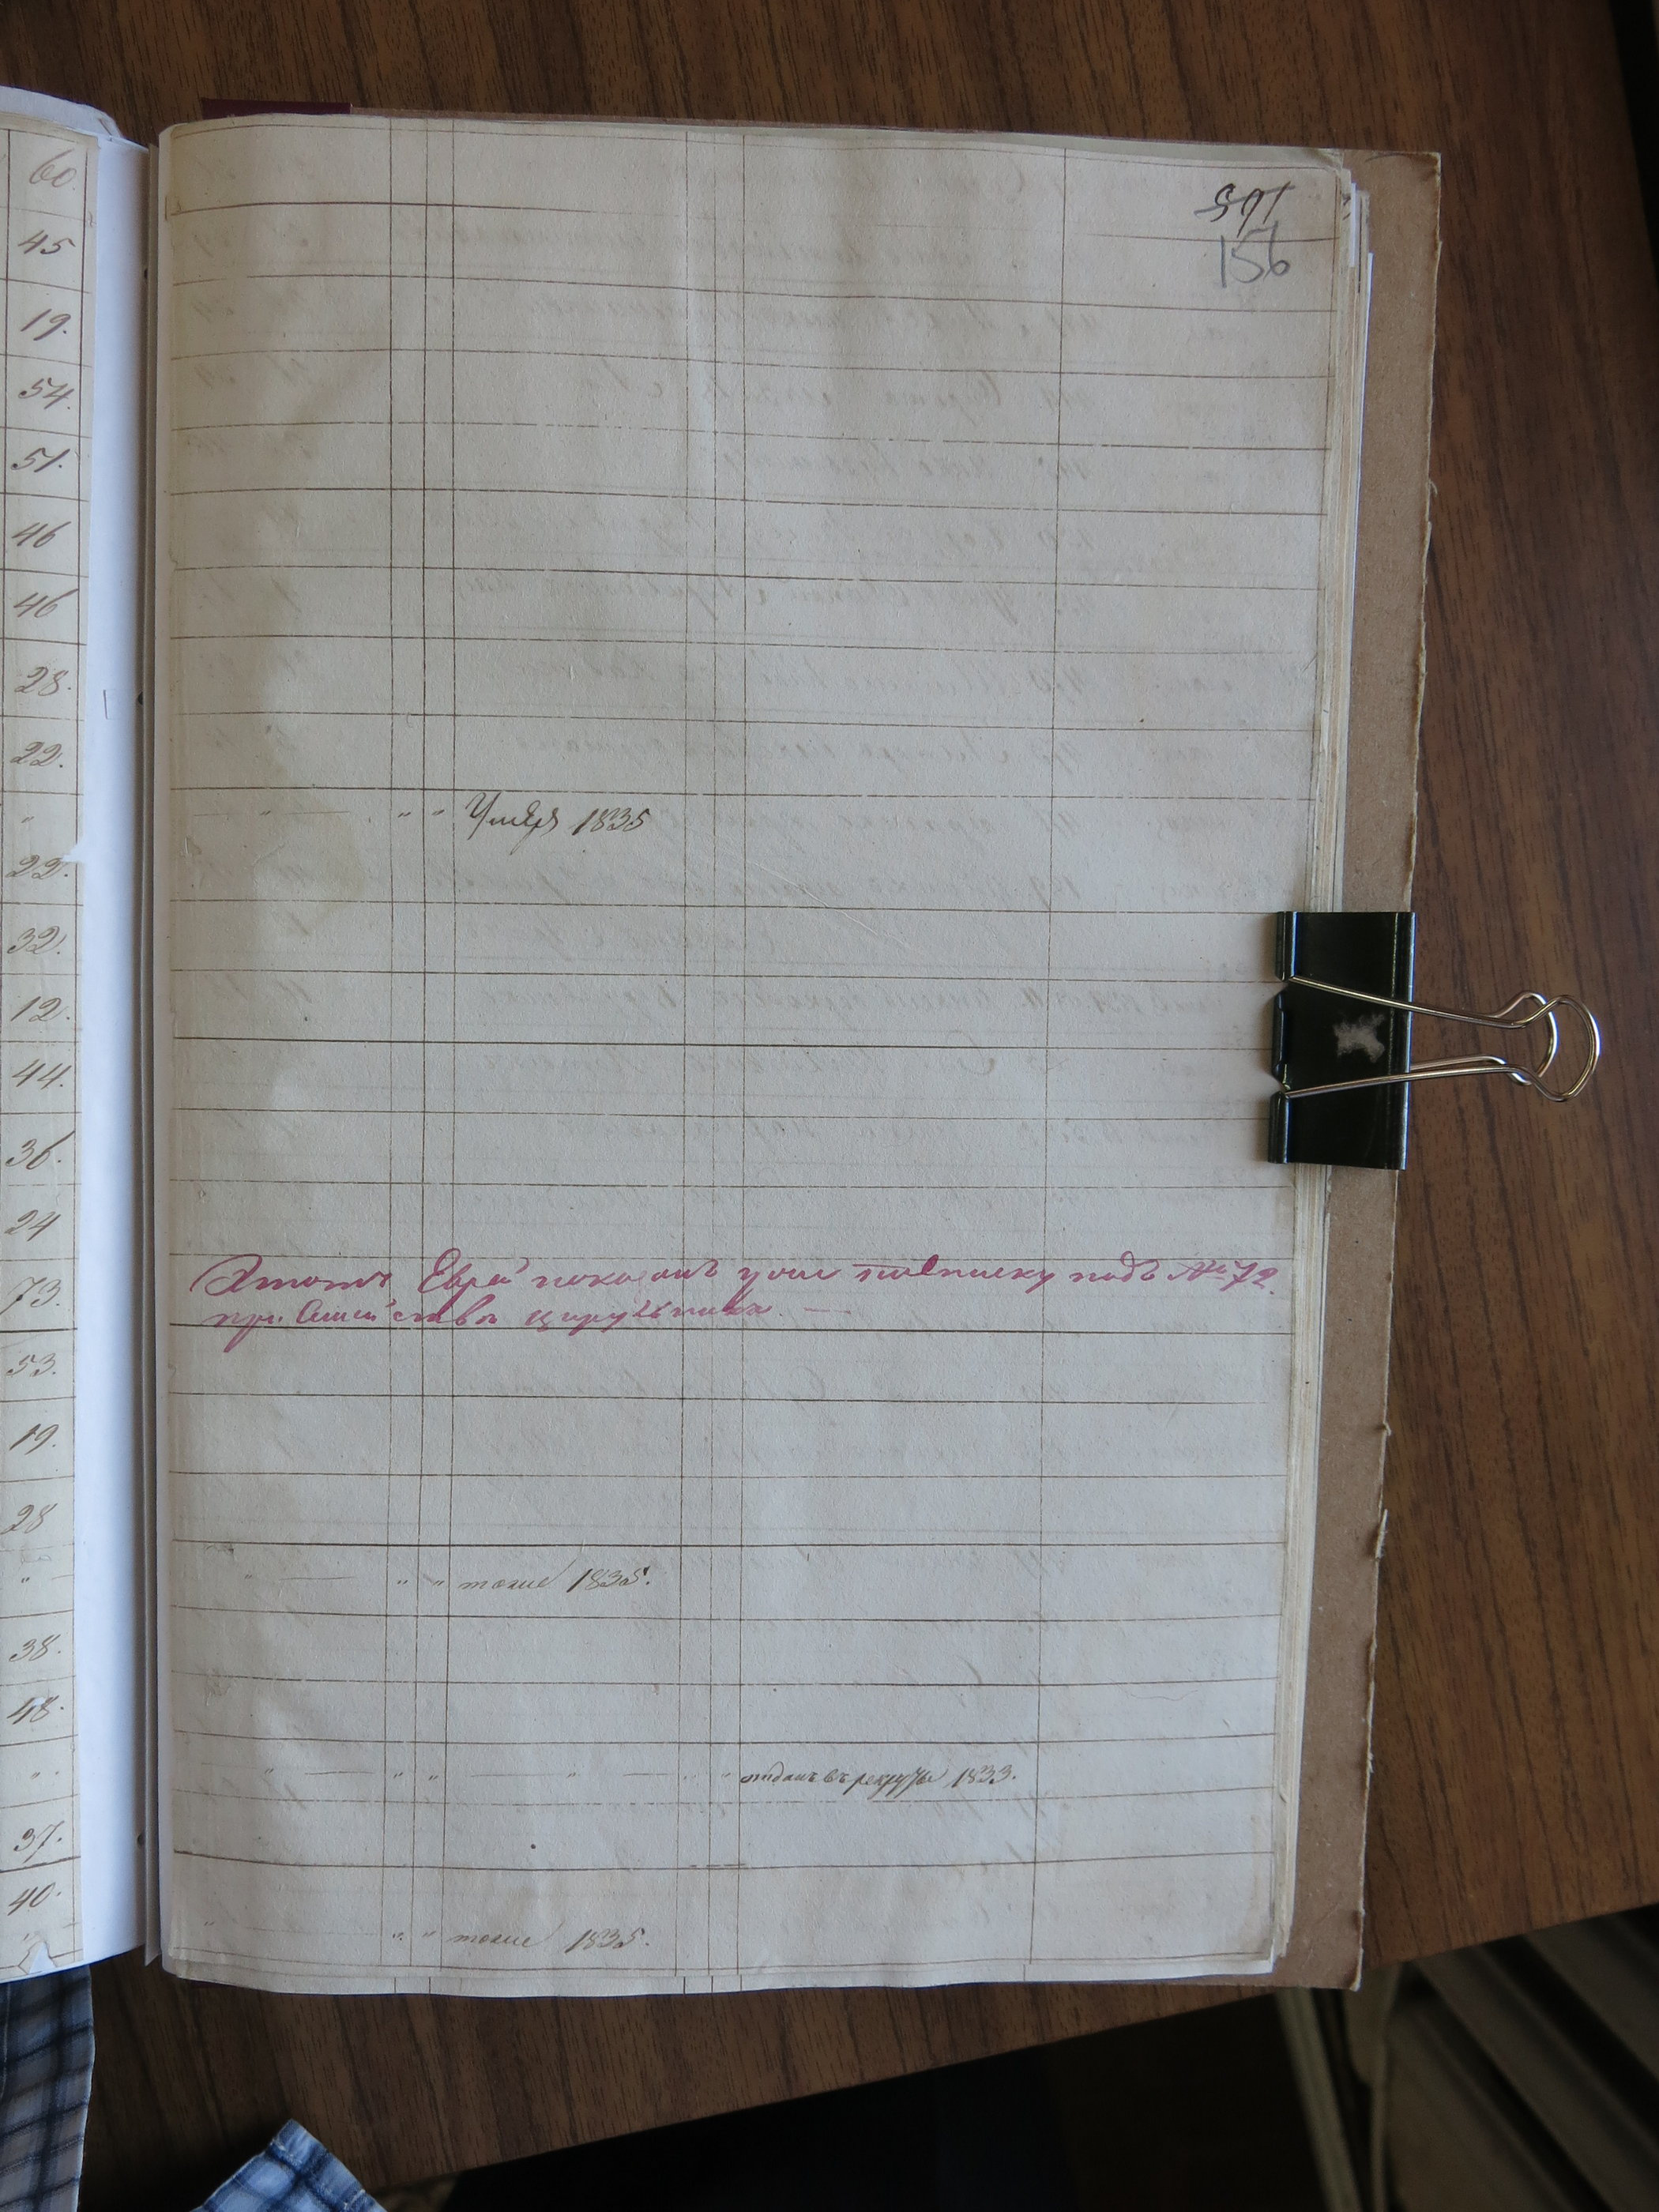 60.
45
19.
54.
51.
46
46
28.
22.
"
22.
32.
12.
44.
36.
24
73.
53.
19.
28
"
38.
48.
"
37.
40.
"
391
156
" — " " Умеръ 1835
Этотъ Еврей показанъ уже подъ № 72.
при семействѣ цирульника. —
" — " " тоже 1835.
" — " " — " — " " отданъ въ рекруты 1833.
" — " " тоже 1835.